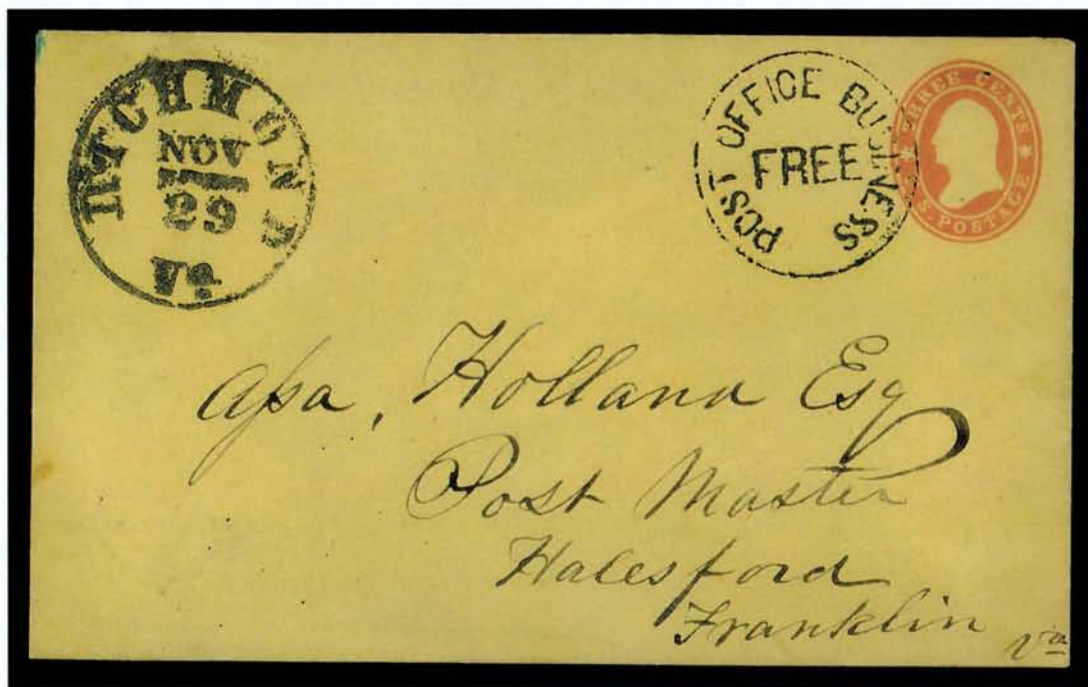 RICHMOND
NOV
29
Va.
POST OFFICE BUSINESS
FREE
THREE CENTS
U.S. POSTAGE
Assa, Holland Esq
Post Master
Halesford
Franklin Va